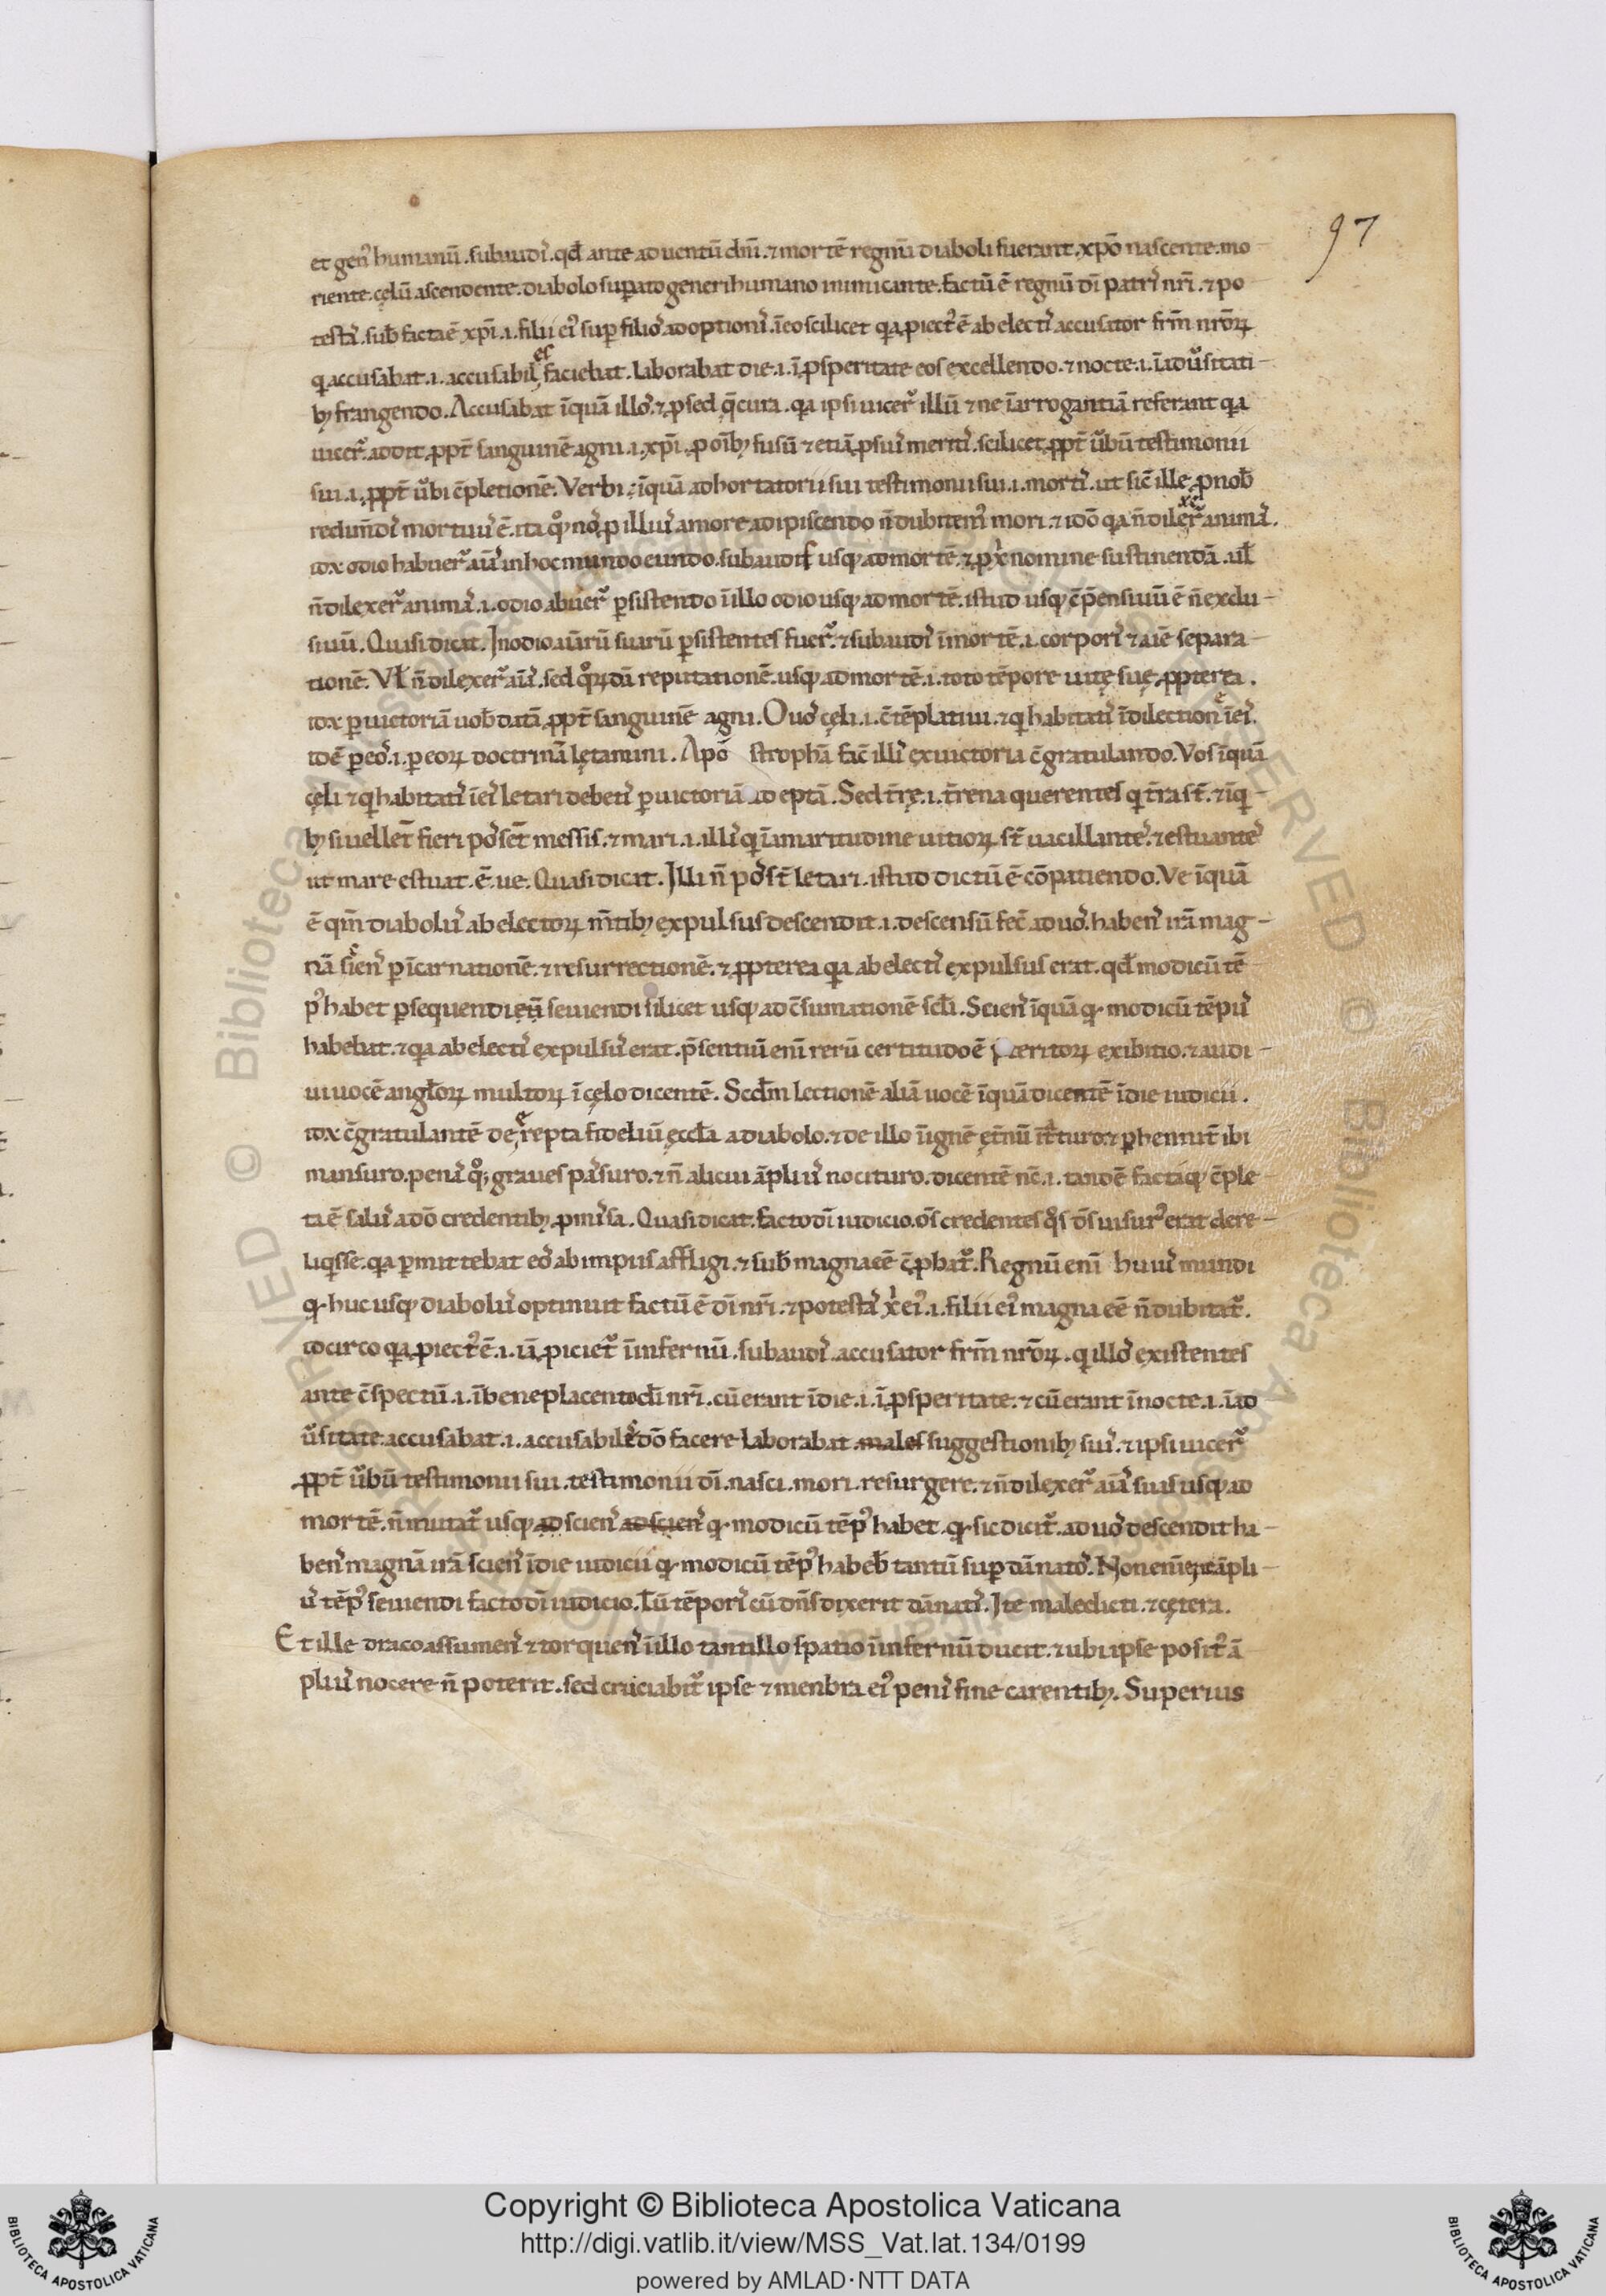 97
et gen᷒ humanū. subaudi᷒. qd̄ ante aduentū dn̄i. ⁊ mortē regnū diaboli fuerant. xp̄o nascente. mo-
riente. cęlū ascendente. diabolo suꝑato generi humano inimicante. factū ē regnū dī patr᷒ nr̄i. ⁊ po
testa᷒. sub̄ facta ē xp̄i .i. filii ei᷒ suꝑ filio᷒ adoptioni᷒. īeo scilicet qa ꝓiect᷒ ē ab electi᷒ accusator frm̄ nr̄oꝝ
q accusabat .i. accusabiles faciebat. Laborabat die .i. ī ꝓsperitate eos excellendo. ⁊ nocte .i. ī adu᷒sitati-
bꝫ frangendo. Accusabat īquā illo᷒. ⁊ ꝓ sed q̄cura. qa ipsi uicer᷒ illū ⁊ ne ī arrogantiā referant qa
uicer᷒. addit. ꝓpt̄ sanguinē agni .i. xp̄i. ꝓ oīb; fusū ⁊ etiā ꝓ sui᷒ meriti᷒. scilicet ꝓpt̄ ūbū testimonii
sui .i. ꝓpt̄ ūbi c̄pletionē. Verbi īquā adhortatorii sui testimonii sui .i. morti᷒. ut sic̄ ille ꝓ nob̄
redim̄di᷒ mortuu᷒ ē. ita qͦꝫ no᷒ ꝓ illiu᷒ amore adipiscendo n̄ dubitem᷒ mori. ⁊ idō qa n̄ dilexer᷒ animā᷒.
iđx odio habuer᷒ aīa᷒ in hoc mundo eundo. subaudit usqꝫ ad mortē. ⁊ ꝓ xi᷒ nomine sustinendā. ul̄
n̄ dilexer᷒ animā᷒ .i. odio abuer᷒ ꝑsistendo ī illo odio usqꝫ ad mortē. istud usqꝫ c̄p̄ensiuū ē n̄ exclu-
siuū. Quasi dicat. In odio aīarū suarū ꝑsistentes fuer᷒. ⁊ subaudi᷒ ī mortē .i. corpori᷒ ⁊ aīe separa-
tionē. Vl̄ n̄ dilexer᷒ aīa᷒. sed qͦꝝdā reputationē. usqꝫ ad mortē .i. toto tēpore uitę suę. ꝓpterea.
iđx ꝑ uictoriā uob̄ datā. ꝓpt̄ sanguinē agni. O uo᷒ cęli .i. c̄tēplatiui. ⁊ q habitati᷒ ī dilectione ī ei᷒.
idē ꝑ eo᷒ .i. ꝑ eoꝝ doctrinā lętamini. Apo strophā fac̄ illi᷒ ex uictoria c̄gratulando. Vos īquā
cęli ⁊ q habitati᷒ ī ei᷒ letari debeti᷒ ꝑ uictoriā adeptā. Sed t̄rę .i. t̄rena querentes q t̄ra st̄. ⁊ ī q-
bꝫ si uellet̄ fieri po᷒set̄ messis. ⁊ mari .i. illi᷒ q ī amaritudine uitioꝝ st̄ uacillante᷒. ⁊ estuante᷒
ut mare estuat. ē. ue. Quasi dicat. Illi n̄ po᷒st̄ letari. istud dictū ē cōpatiendo. Ve īquā
ē qm̄ diabolu᷒ ab electoꝝ m̄tibꝫ expulsus descendit .i. descensū fec̄ ad uo᷒. haben᷒ irā mag-
nā sien᷒ ꝑ īcarnationē. ⁊ resurrectionē. ⁊ ꝓpterea qa ab electi᷒ expulsus erat. qd̄ modicū tē-
p᷒ habet ꝑsequendi eū seuiendi silicet usqꝫ ad c̄sumationē scl̄i. Scien᷒ īquā q modicū tēpu᷒
habebat. ⁊ qa ab electi᷒ expulsu᷒ erat. p̄sentiū enī rerū certitudo ē p̄teritoꝝ exibitio. ⁊ audi-
ui uocē angl̄oꝝ multoꝝ ī cęlo dicentē. Scd̄m lectionē aliā uocē īquā dicentē ī die iudicii.
iđx c̄gratulantē de erepta fideliū ęccl̄a a diabolo. ⁊ de illo ī ignē ęt̄nū ītturo. ⁊ ꝑhennit̄ ibi
mansuro. peni᷒ qͦꝫ graues pa᷒suro. ⁊ n̄ alicui āpliu᷒ nocituro. dicentē nc̄ .i. tandē facta qꝫ c̄ple
ta ē salu᷒ a dō credentibꝫ ꝓmi᷒sa. Quasi dicat. facto dī iudicio. os̄ credentes qͦs ds̄ uisur᷒ erat dere-
liqsse. qa ꝑmittebat eo᷒ ab impiis affligi. ⁊ sub̄ magna eē c̄ꝓbat᷒. Regnū enī hui᷒ mundi
q huc usqꝫ diabolu᷒ optinuit factū ē dī nr̄i. ⁊ potesta᷒ xi᷒ ei᷒ .i. filii ei᷒ magna eē n̄ dubitat᷒.
idcirco qa ꝓiect᷒ ē .i. uā ꝓiciet᷒ ī infernū. subaudi᷒. accusator frm̄ nr̄oꝝ. q illo᷒ existentes
ante c̄spectū .i. ī beneplacento dī nr̄i. cū erant ī die .i. ī ꝓsperitate. ⁊ cū erant ī nocte .i. ī ad
ūsitate. accusabat .i. accusabile᷒ dō facere laborabat males suggestionibꝫ sui᷒. ⁊ ipsi uicer᷒
ꝓpt̄ ūbū testimonii sui. testimonii dī. nasci. mori. resurgere. ⁊ n̄ dilexer᷒ aīa᷒ suas usqꝫ ad
mortē. n̄ mutat᷒ usqꝫ ad scien᷒ ad scien᷒ q modicū tēp᷒ habet. q sic dicit᷒. ad uo᷒ descendit ha-
ben᷒ magnā irā scien᷒ ī die iudicii q modicū tēp᷒ habeb̄ tantū suꝑ dānato᷒. Non enī erit āpli-
u᷒ tēp᷒ seuiendi facto dī iudicio. Tū tēpori᷒ cū dn̄s dixerit dānati᷒. Ite maledicti. ⁊ cętera.
Et ille draco assumen᷒ ⁊ torquen᷒ ī illo tantillo spatio ī infernū ducit. ⁊ ubi ipse posit᷒ ā
pliu᷒ nocere n̄ poterit. sed cruciabit᷒ ipse ⁊ menbra ei᷒ peni᷒ fine carentibꝫ. Superius
Copyright © Biblioteca Apostolica Vaticana
http://digi.vatlib.it/view/MSS_Vat.lat.134/0199
powered by AMLAD·NTT DATA